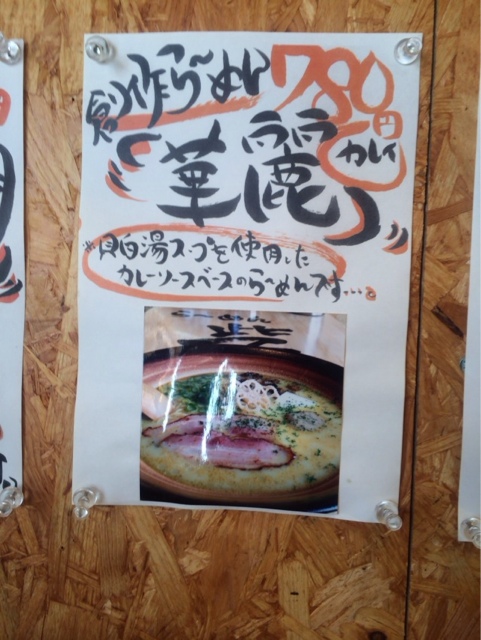 創作らーめん 780円
「華麗」カレイ
※貝白湯スープを使用した
カレーソースベースのらーめんです...。